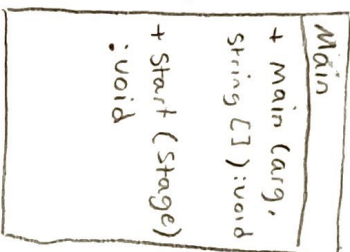 Main
+ Main (arg,
String []):void
+ Start (Stage)
:void